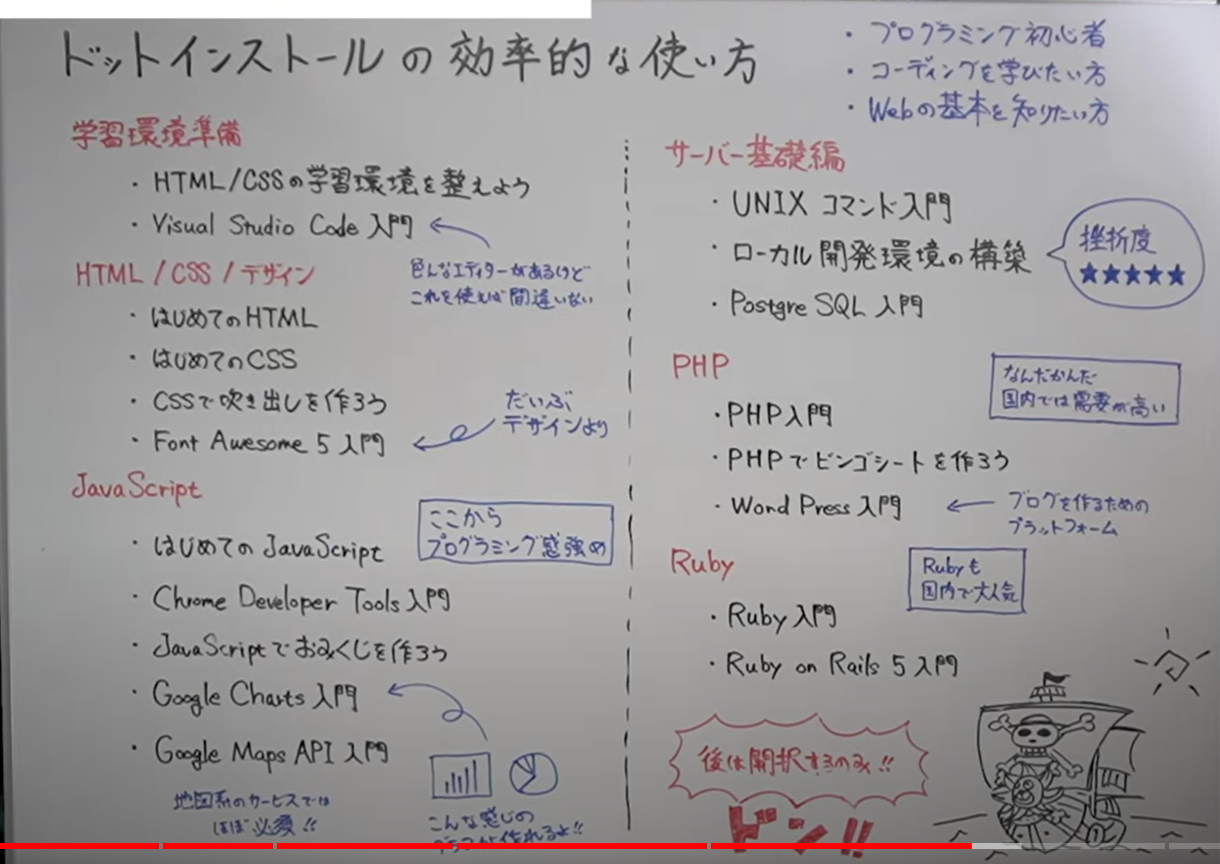 ドットインストールの効率的な使い方
・プログラミング初心者
・コーディングを学びたい方
・Webの基本を知りたい方
学習環境準備
・HTML/CSSの学習環境を整えよう
・Visual Studio Code 入門
色んなエディターがあるけど
これを使えば間違いない
HTML / CSS / デザイン
・はじめてのHTML
・はじめてのCSS
・CSSで吹き出しを作ろう
・Font Awesome 5 入門
だいぶ
デザインより
JavaScript
ここから
プログラミング感強め
・はじめての JavaScript
・Chrome Developer Tools 入門
・JavaScriptでおみくじを作ろう
・Google Charts 入門
・Google Maps API 入門
地図系のサービスでは
ほぼ必須!!
こんな感じの
グラフとか作れるよ!!
サーバー基礎編
・UNIX コマンド入門
・ローカル開発環境の構築
挫折度
★★★★★
・PostgreSQL 入門
PHP
なんだかんだ
国内では需要が高い
・PHP入門
・PHPでビンゴシートを作ろう
・WordPress 入門
ブログを作るための
プラットフォーム
Ruby
Rubyも
国内で大人気
・Ruby 入門
・Ruby on Rails 5 入門
後は開択するのみ!!
ドン!!